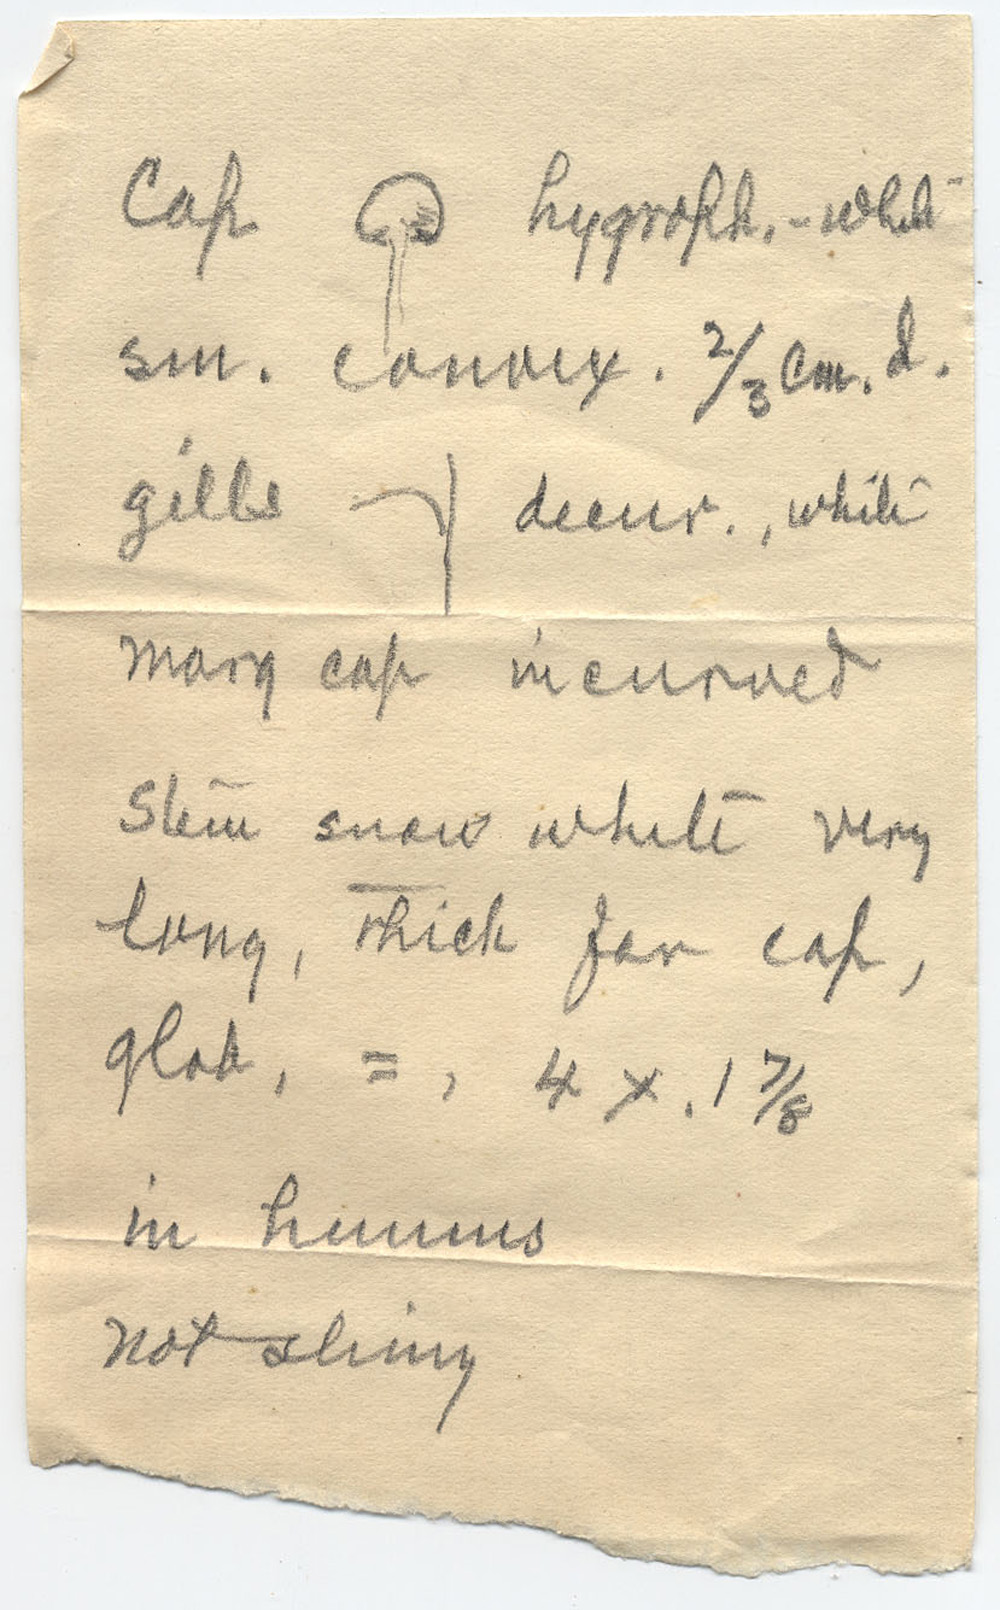 Cap hygroph. - white
sm. convex. 2/3 cm. d.
gills decur., white
marg cap incurved
Stem snow white very
long, thick for cap,
glab, =, 4 x .1 7/8
in humus
not slimy